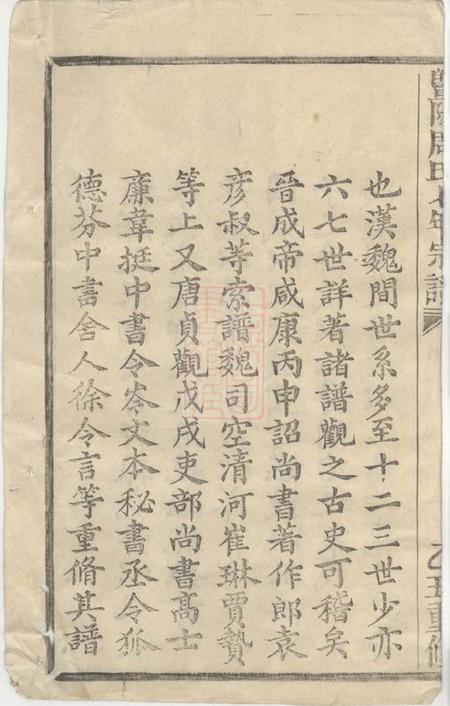 暨陽周氏宗譜
乙丑重脩
也漢魏間世系多至十二三世少亦
六七世詳著諸譜觀之古史可稽矣
晉成帝咸康丙申詔尚書著作郎袁
彦叔等索譜魏司空清河崔琳賈贄
等上又唐貞觀戊戌吏部尚書高士
廉韋挺中書令岑文本秘書丞令狐
德芬中書舍人徐令言等重脩其譜